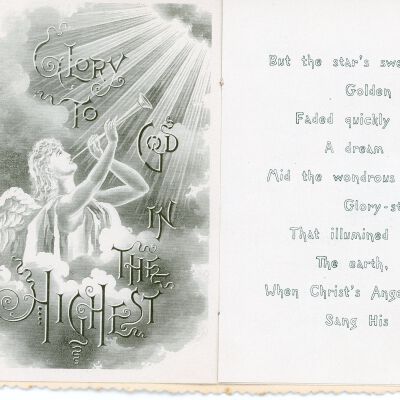 Glory
To
God
in
the
Highest
But the star's swe
Golden
Faded quickly
A dream
Mid the wondrous
Glory-st
That illumined
The earth,
When Christ's Ange
Sang His